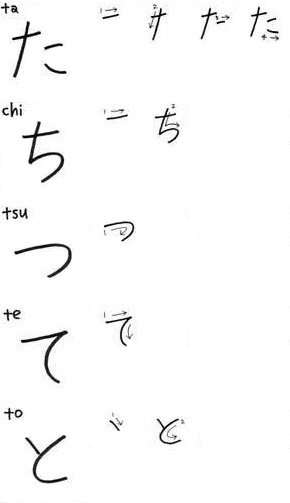 ta
た
chi
ち
tsu
つ
te
て
to
と